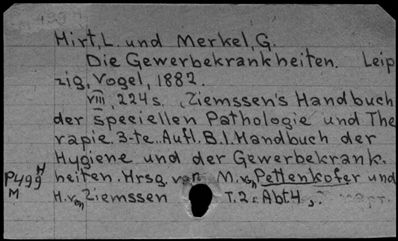 Hirt, L. und Merkel, G.
Die Gewerbekrankheiten. Leip
zig, Vogel, 1882.
VIII, 224 s. (Ziemssen's Handbuch
der speciellen Pathologie und The
rapie. 3-te. Aufl. B.1. Handbuch der
Hygiene und der Gewerbekrank.
P499 H M heiten. Hrsg. von M. von Pettenkofer und
H. von Ziemssen T.2. Abt. 4